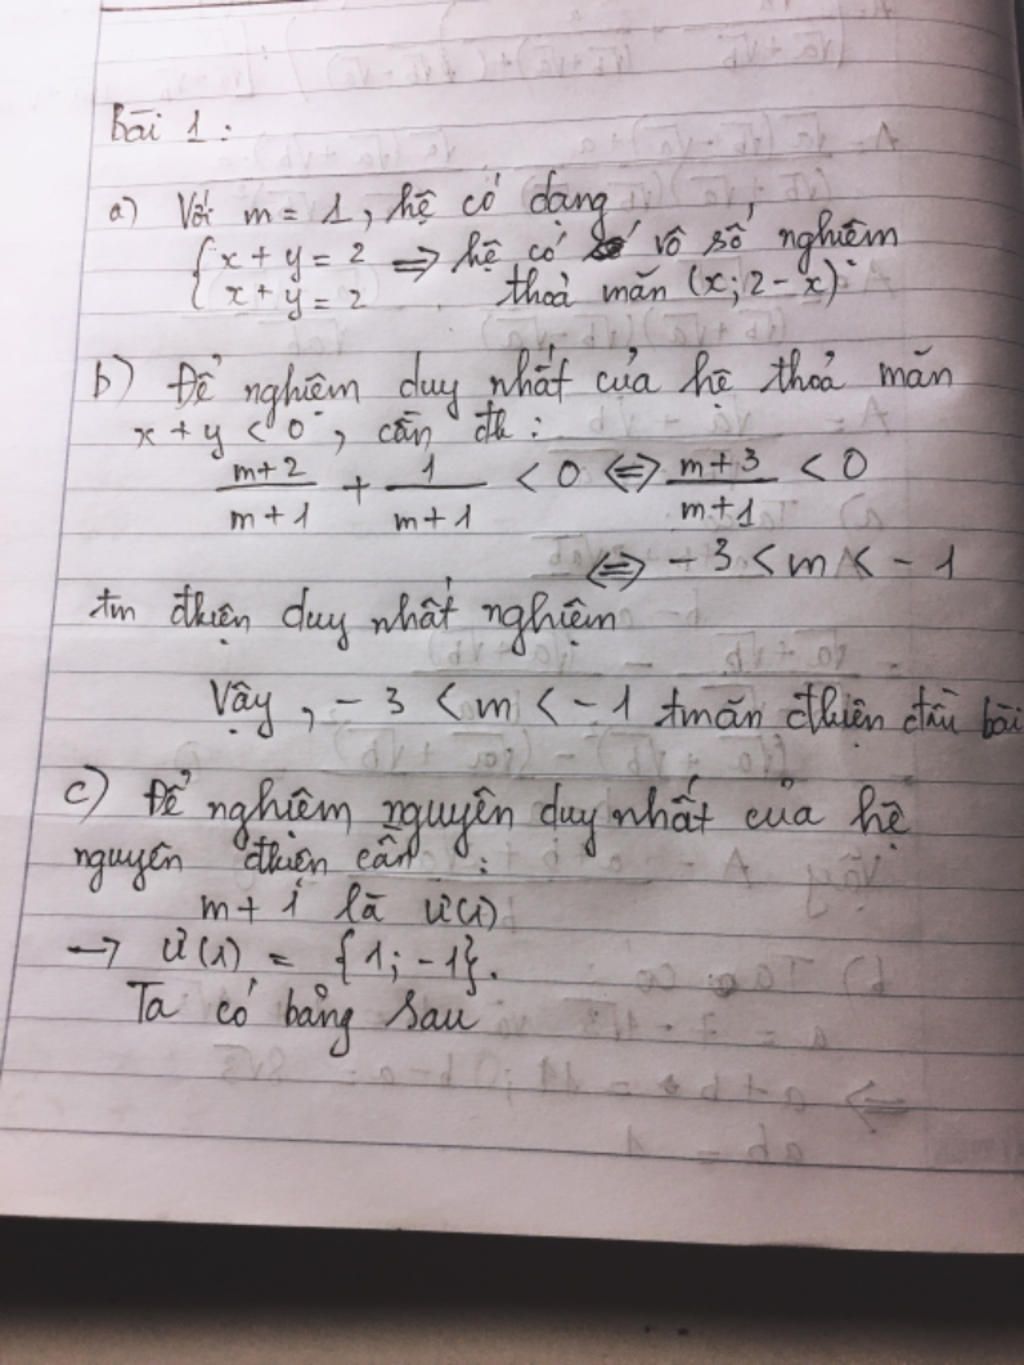 Bài 1:
a) Với m = 1, hệ có dạng
{ x + y = 2 ⇒ hệ có vô số nghiệm
x + y = 2 thoả mãn (x; 2 - x)
b) Để nghiệm duy nhất của hệ thoả mãn
x + y < 0, cần đk:
(m+2)/(m+1) + 1/(m+1) < 0 ⇔ (m+3)/(m+1) < 0
⇔ -3 < m < -1
tm đkiện duy nhất nghiệm
Vậy, -3 < m < -1 tmãn đkiện đầu bài
c) Để nghiệm nguyên duy nhất của hệ
nguyên đkiện cần :
m + 1 là Ư(1)
→ Ư(1) = {1; -1}.
Ta có bảng sau